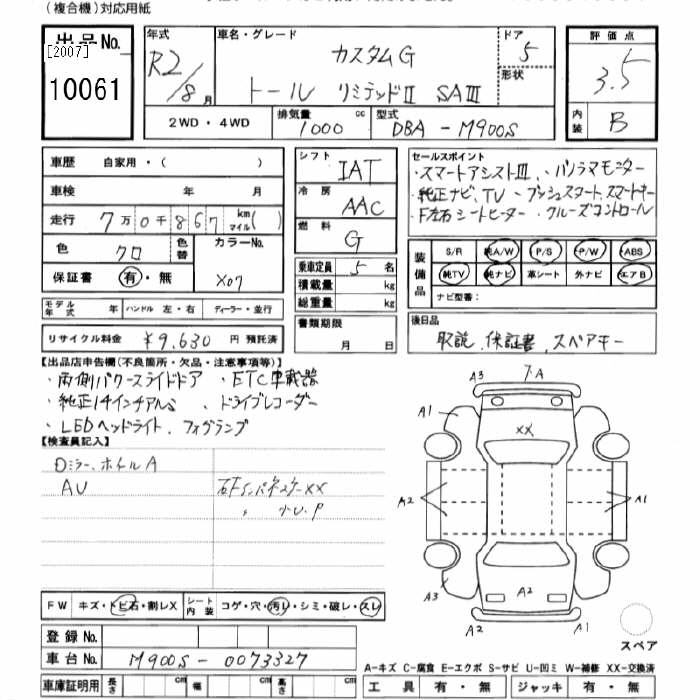 (複合機)対応用紙
出品No. [2007] 10061
年式 R2/8月
車名・グレード カスタムG
トール リミテッドII SAIII
ドア 5
形状
評価点 3.5
内装 B
2WD・4WD
排気量 1000 cc
型式 DBA-M900S
車歴 自家用・( )
車検 年 月
走行 7万0千867 km マイル( )
色 クロ 色替 カラーNo. X07
保証書 有・無
モデル年式 年 ハンドル 左・右 ディーラー・並行
リサイクル料金 ¥9,630 円 預託済
シフト IAT
冷房 AAC
燃料 G
乗車定員 5 名
積載量 kg
総重量 kg
書類期限 月 日
セールスポイント
・スマートアシストIII、・パノラマモニター
・純正ナビ、TV・プッシュスタート、スマートキー
・F左右シートヒーター・クルーズコントロール
装備品 S/R 純A/W P/S P/W ABS
純TV 純ナビ 革シート 外ナビ エアB
ナビ型番:
後日品
取説、保証書、スペアキー
【出品店申告欄(不良箇所・欠品・注意事項等)】
・両側パワースライドドア ・ETC車載器
・純正14インチアルミ 、ドライブレコーダー
・LEDヘッドライト、フォグランプ
【検査員記入】
Dミラー、ホイルA
AU
XX
小U、P
A3 7-A
A1
XX
A2 A1
A3 A2
A2 A1
スペア
FW キズ・トビ石・割レX シート内装 コゲ・穴・汚レ・シミ・破レ・スレ
登録No.
車台No. M900S-0073327
車庫証明用 長さ cm 幅 cm 高さ cm
A-キズ C-腐食 E-エクボ S-サビ U-凹ミ W-補修 XX-交換済
工具 有・無 ジャッキ 有・無